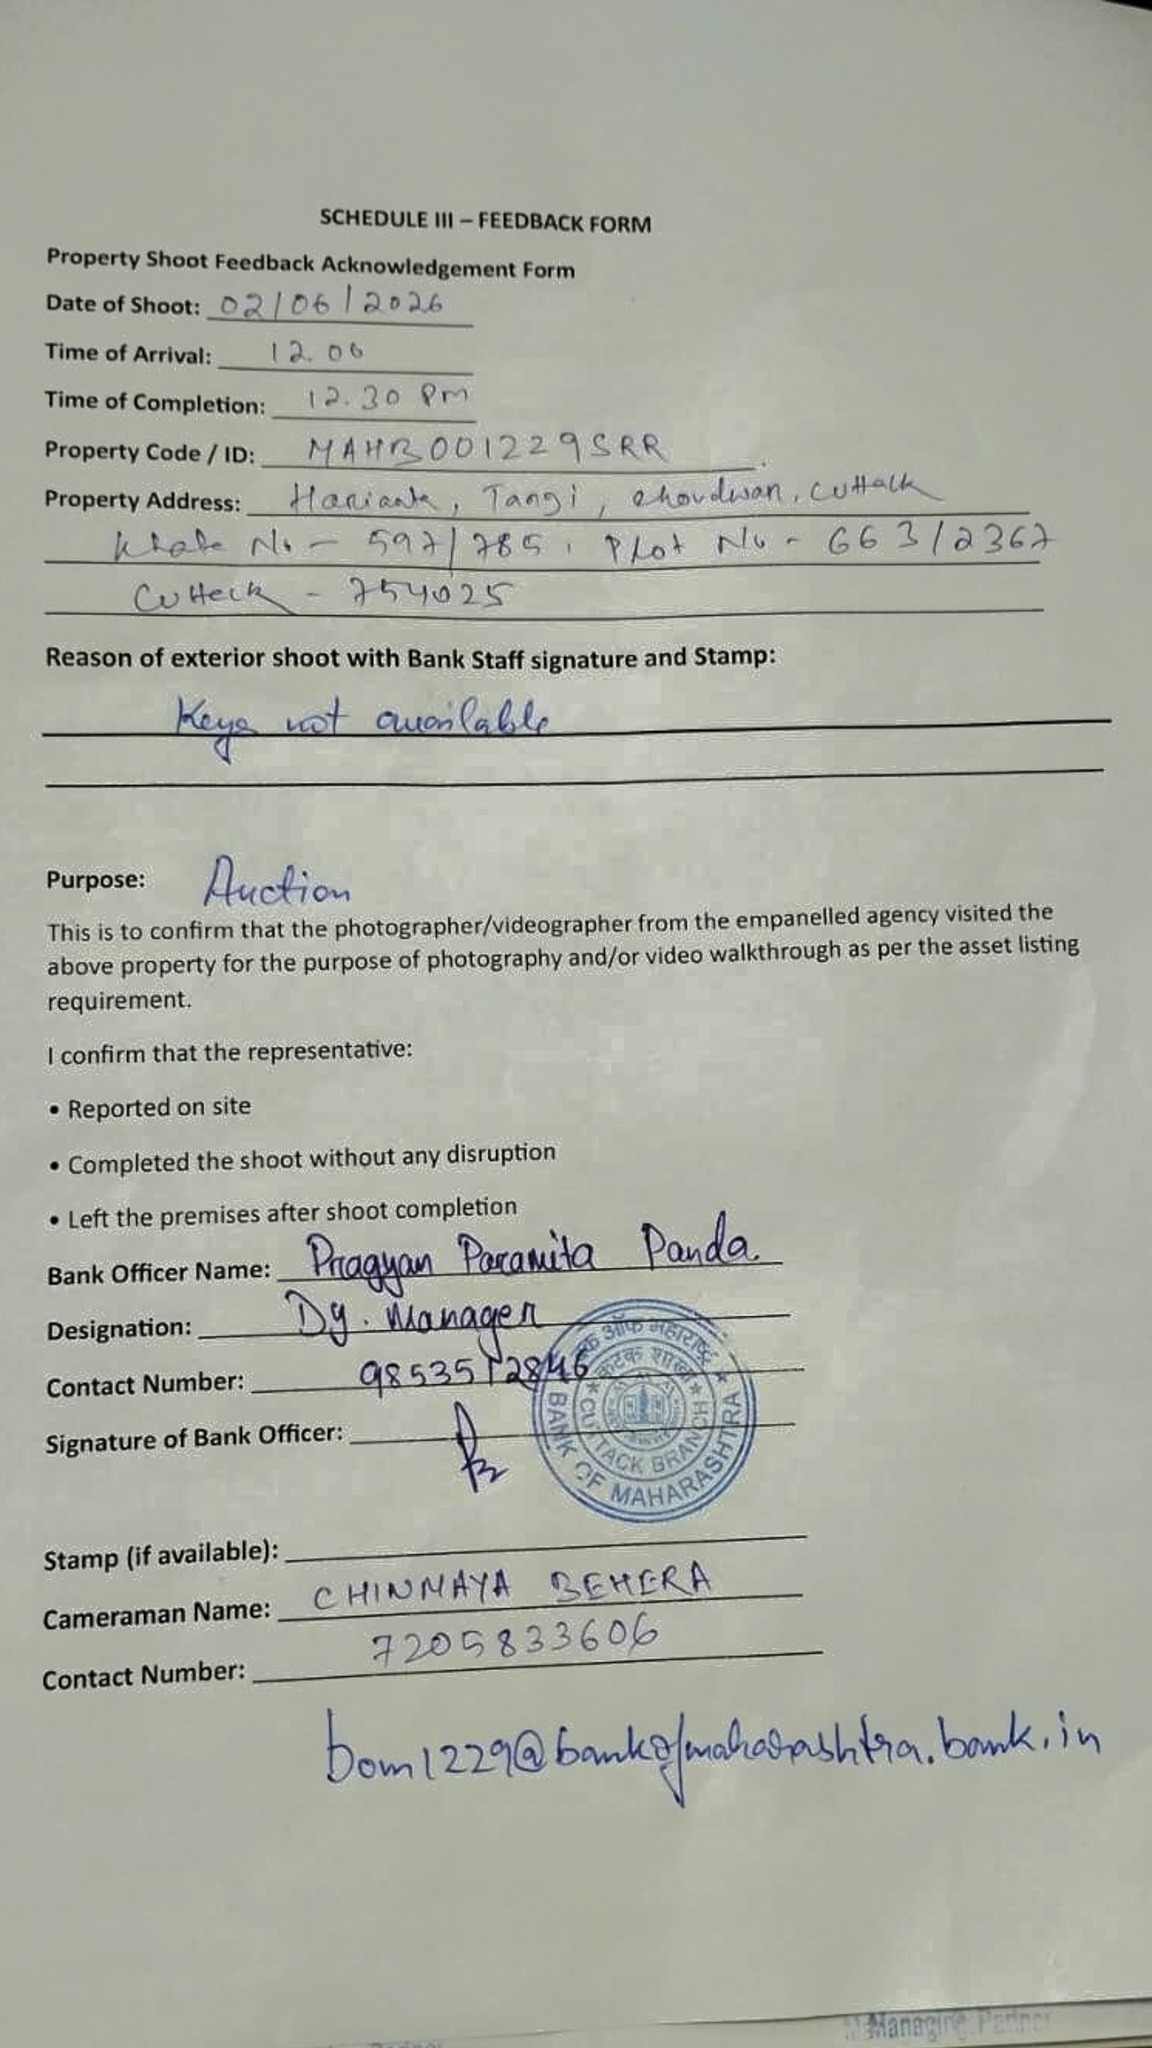 SCHEDULE III – FEEDBACK FORM
Property Shoot Feedback Acknowledgement Form
Date of Shoot: 02/06/2026
Time of Arrival: 12.06
Time of Completion: 12.30 Pm
Property Code / ID: MAHB001229SRR
Property Address: Harianta, Tangi, Choudwan, Cuttack
Khata No - 597/785, Plot No - 663/2367
Cutteck - 754025
Reason of exterior shoot with Bank Staff signature and Stamp:
Keys not available
Purpose: Auction
This is to confirm that the photographer/videographer from the empanelled agency visited the
above property for the purpose of photography and/or video walkthrough as per the asset listing
requirement.
I confirm that the representative:
• Reported on site
• Completed the shoot without any disruption
• Left the premises after shoot completion
Bank Officer Name: Pragyan Paramita Panda
Designation: Dy. Manager
Contact Number: 9853512846
Signature of Bank Officer:
बैंक ऑफ महाराष्ट्र
कटक शाखा
CUTTACK BRANCH
BANK OF MAHARASHTRA
Stamp (if available):
Cameraman Name: CHINMAYA BEHERA
Contact Number: 7205833606
bom1229@bankofmaharashtra.bank.in
Managing Partner